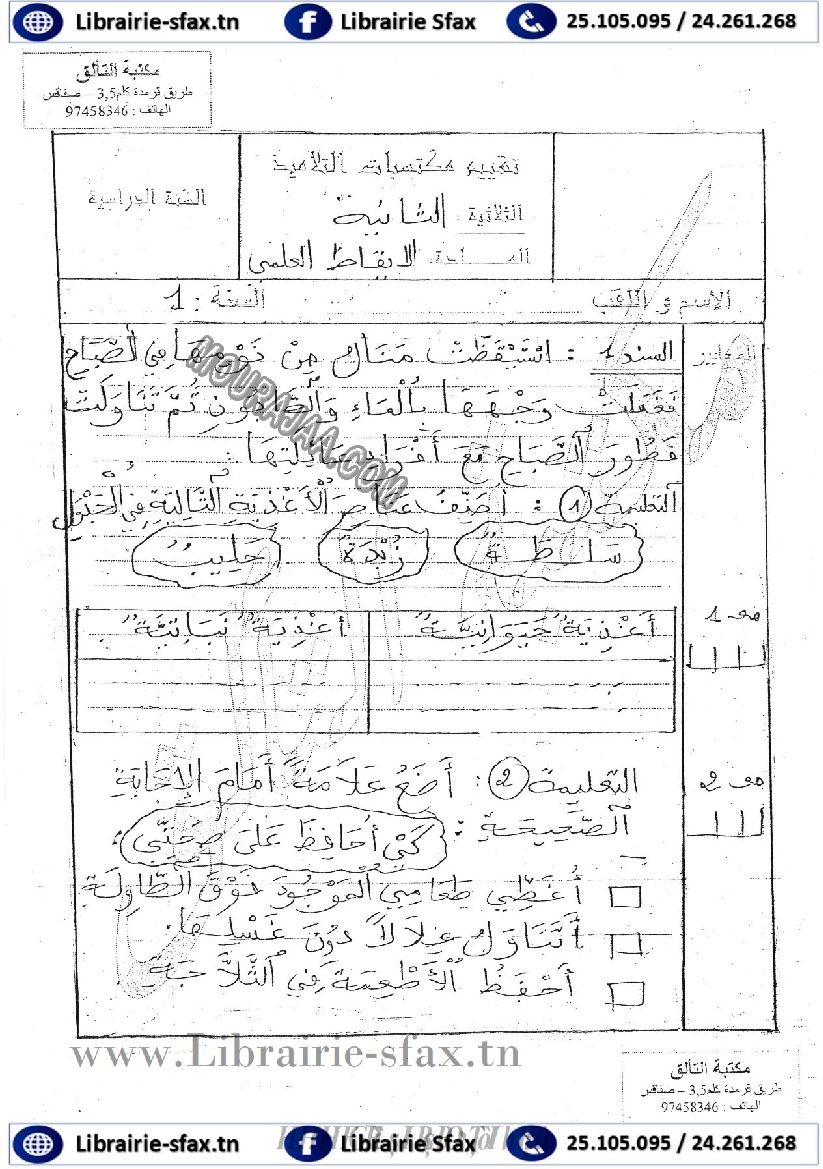 Librairie-sfax.tn Librairie Sfax 25.105.095 / 24.261.268
مكتبة التألق
طريق قرمدة كلم3,5 – صفاقس
الهاتف : 97458346
تقييم مكتسبات التلاميذ
الثلاثية: الثانية
المــــادة: الايقاظ العلمي
السنة الدراسية
الإسم و اللقب
السنة : 1
المعايير
السند 1 : اسْتَيْقَظَتْ مَنَالُ مِنْ نَوْمِهَا فِي الصَّبَاحِ
فَغَسَلَتْ وَجْهَهَا بِالْمَاءِ وَالصَّابُونِ ثُمَّ تَنَاوَلَتْ
فَطُورَ الصَّبَاحِ مَعَ أَفْرَادِ عَائِلَتِهَا.
التعليمة 1 : أُصَنِّفُ عَنَاصِرَ الْأَغْذِيَةِ التَّالِيَةِ فِي الْجَدْوَلِ
سَلَطَةٌ زُبْدَةٌ حَلِيبٌ
مع 1
أَغْذِيَةٌ حَيَوَانِيَّةٌ أَغْذِيَةٌ نَبَاتِيَّةٌ
مع 2
التعليمة 2 : أَضَعُ عَلَامَةً أَمَامَ الإِجَابَةِ
الصَّحِيحَةِ : كَيْ أُحَافِظَ عَلَى صِحَّتِي :
أُغَطِّي طَعَامِي الْمَوْجُودَ فَوْقَ الطَّاوِلَةِ
أَتَنَاوَلُ غِلَالاً دُونَ غَسْلِهَا.
أَحْفَظُ الْأَطْعِمَةَ فِي الثَّلَّاجَةِ
MOURAJAA.COM
www.Librairie-sfax.tn
مكتبة التألق
طريق قرمدة كلم3,5 – صفاقس
الهاتف : 97458346
Librairie-sfax.tn Librairie Sfax 25.105.095 / 24.261.268